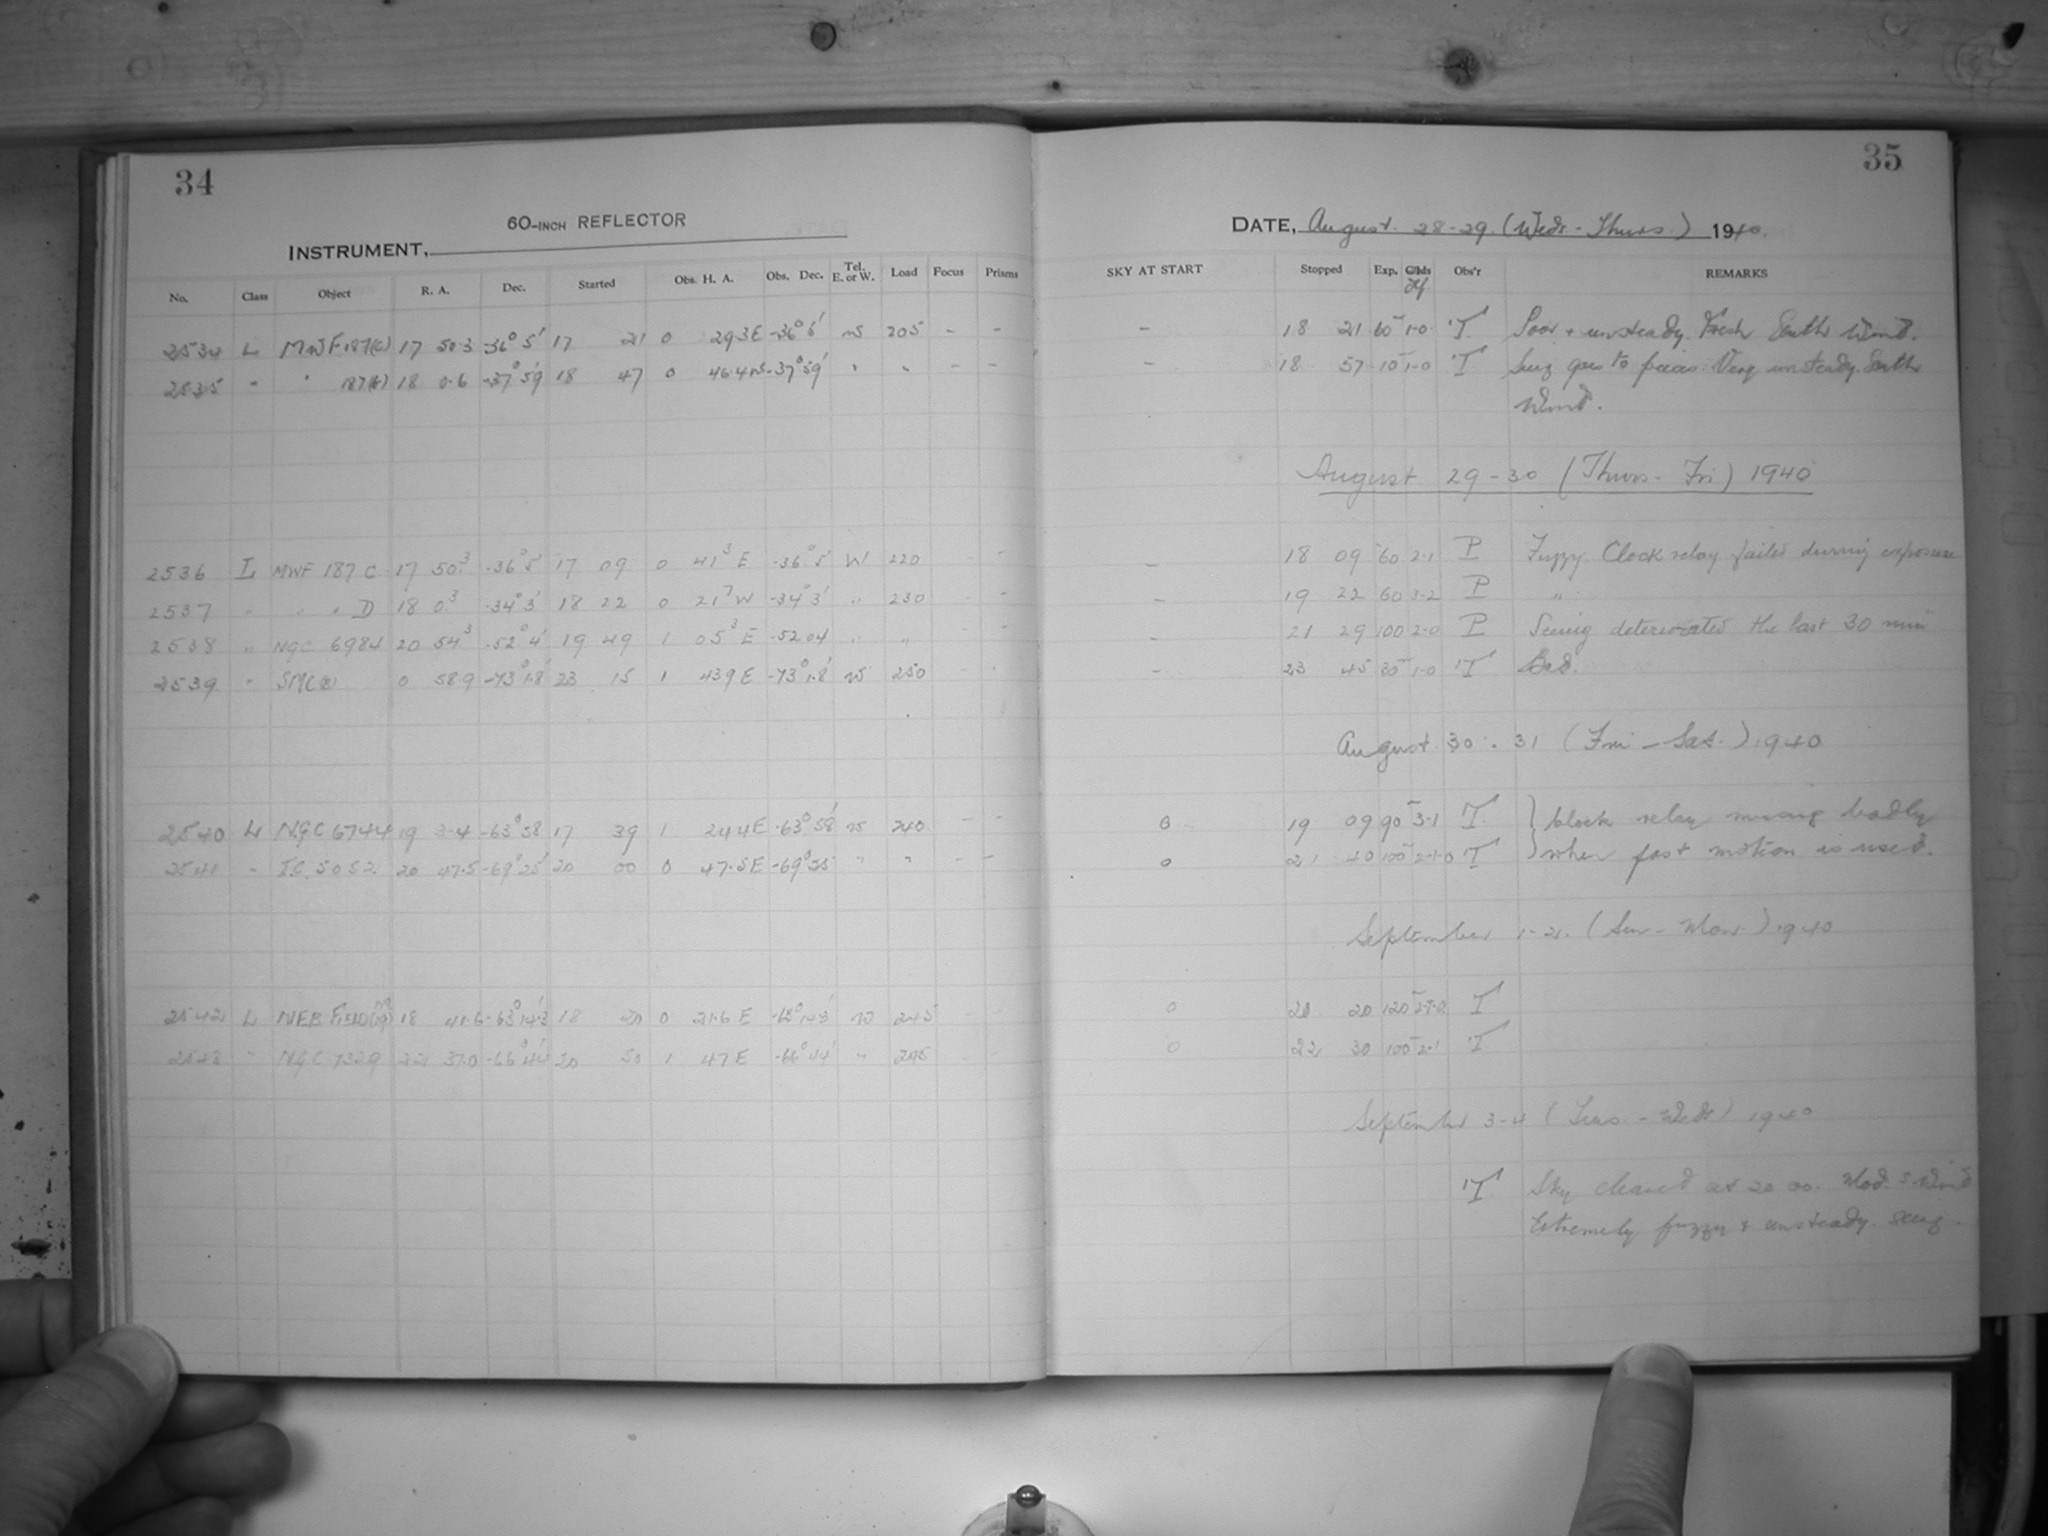 34
60-INCH REFLECTOR
INSTRUMENT,
No. Class Object R. A. Dec. Started Obs. H. A. Obs. Dec. Tel. E. or W. Load Focus Prisms
2534 L MWF 187(c) 17 50.3 -36° 5' 17 21 0 29.3E -36° 5' W 205 - -
2535 " " 18 0.6 -37° 59' 18 47 0 46.4W -37° 59' " " - -
2536 L MWF 187 C 17 50.3 -36° 5' 17 09 0 41.3 E -36° 5' W 220 - -
2537 " " " D 18 0.3 -34° 3' 18 22 0 21.7 W -34° 3' " 230 - -
2538 " NGC 6984 20 54.3 -52° 4' 19 49 1 05.3 E -52 04 " " - -
2539 " SMC 0 58.9 -73° 1.8' 23 15 1 43.9 E -73° 1.8' W 250 - -
2540 L NGC 6744 19 3.4 -63° 58' 17 39 1 24.4E -63° 58' W 240 - -
2541 " I.C. 5052 20 47.5 -69° 25' 20 00 0 47.5E -69° 25' " " - -
2542 L NEB Field 18 41.6 -63° 14.3' 18 20 0 21.6 E W 245
2543 " NGC 7329 22 37.0 -66° 44' 20 50 1 47 E -66° 44' "
35
DATE, August 28-29. (Weds - Thurs.) 1940.
SKY AT START Stopped Exp. Obs'r REMARKS
- 18 21 60 1-0 T Poor + unsteady. Fresh South Wind.
- 18 57 10 1-0 T Seeing goes to pieces. Very unsteady. South
Wind.
August 29-30 (Thurs - Fri) 1940
- 18 09 60 2-1 P Fuzzy. Clock relay failed during exposure
- 19 22 60 3-2 P "
- 21 29 100 2-0 P Seeing deteriorated the last 30 min
- 23 45 30 1-0 T Bad.
August 30 - 31 (Fri - Sat.) 1940
0 19 09 90 3-1 T } Clock relay missing badly
0 21 40 100 2-1-0 T } when fast motion is used.
September 1-2. (Sun - Mon.) 1940
0 20 20 120 T
0 22 30 100 2-1 T
September 3-4 (Tues. - Weds) 1940
T Sky cleared at 20 00. Mod. S Wind
Extremely fuzzy & unsteady seeing.